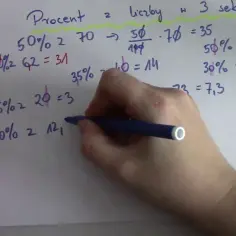 Procent z liczby w 3 sek
50% z 70 → 50/100 · 70 = 35
50%
% z 62 = 31
35% 40 = 14
30%
73 = 7,3
5% z 20 = 3
0% z 12,